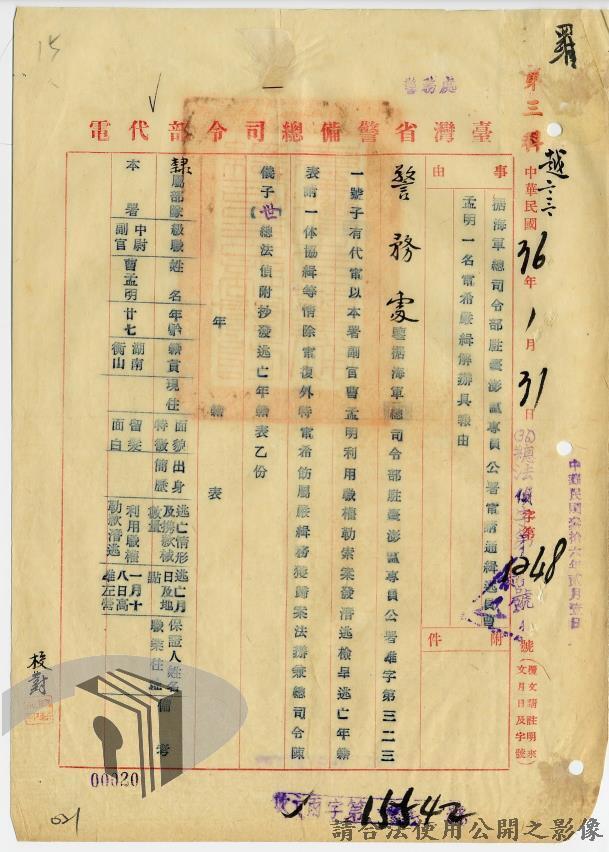 15
警務處
臺灣省警備總司令部代電
第三科
中華民國36年1月31日
(36)總法偵字第1248號
覆文請註明來文月日及字號
事由
據海軍總司令部駐臺澎區專員公署電請通緝逃員曹
孟明一名電希嚴緝解辦具報由
附件
中華民國叁拾六年貳月壹日
警務處鑒據海軍總司令部駐臺澎區專員公署雄字第三二三
一號子有代電以本署副官曹孟明利用職權勒索案發潛逃檢呈逃亡年籍
表請一体協緝等情除電復外特電希飭屬嚴緝務獲歸案法辦兼總司令陳
儀子(世)總法偵附抄發逃亡年籍表乙份
年籍表
隸屬部隊 級職 姓名 年齡 籍貫 現住 面貌特徵 出身簡歷 逃亡情形及拐款械數量 逃亡月日及地點 保證人姓名職業住址 備考
本署 中尉副官 曹孟明 廿七 湖南衡山 面白 留髮 利用職權勒索潛逃 一月十八日高雄左營
校對
00020
021
收文 字第 15542 號
請合法使用公開之影像